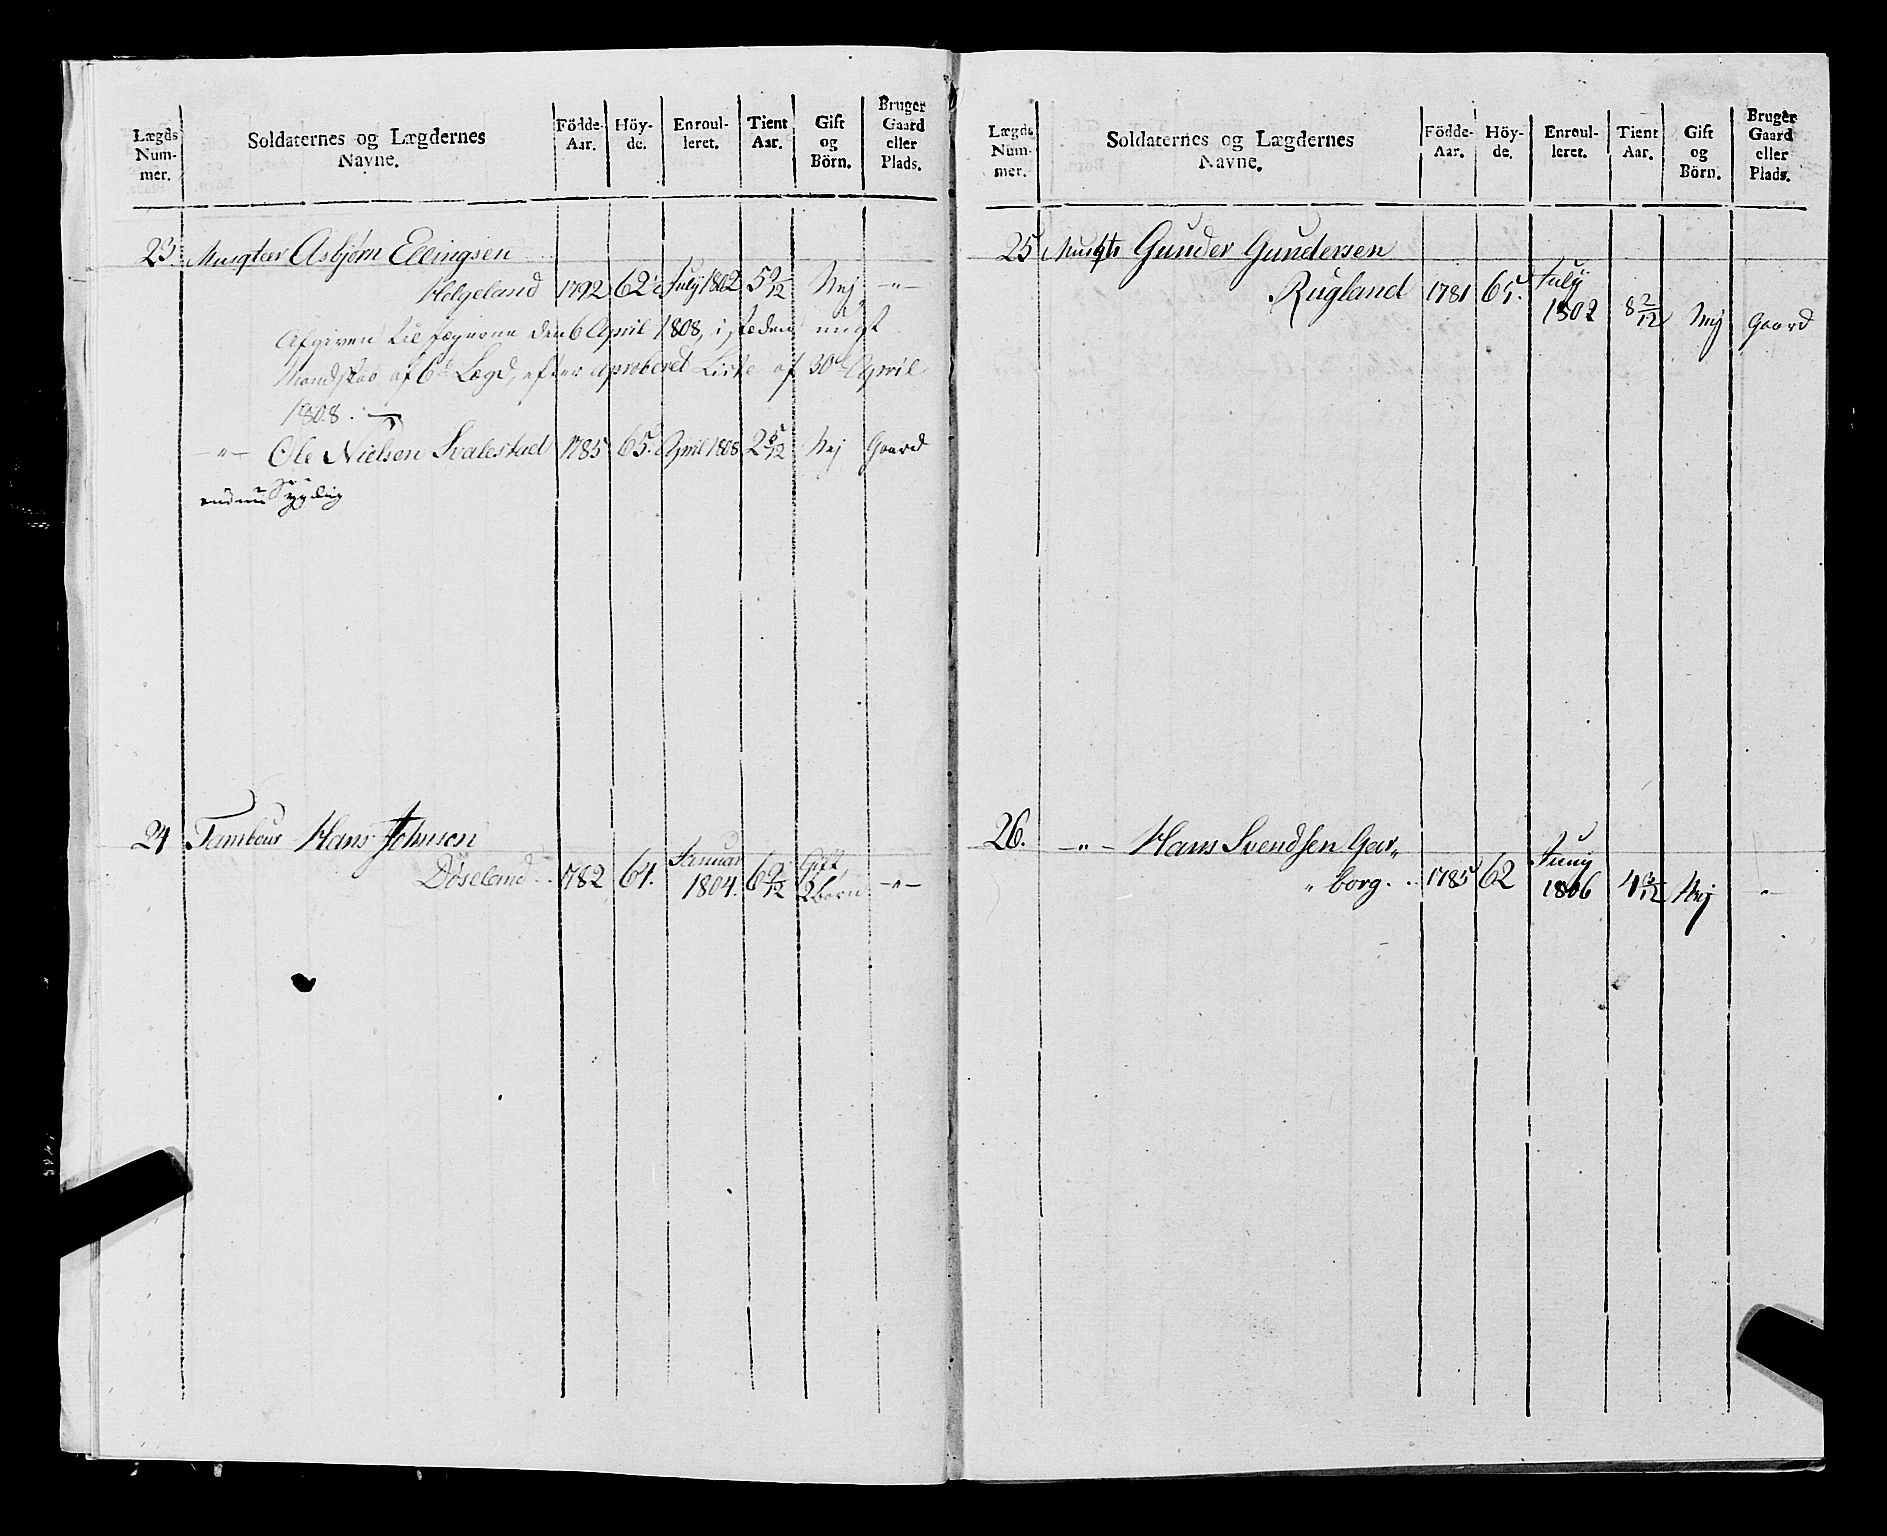 Lægds Num- mer.
Soldaternes og Lægdernes Navne.
Födde- Aar.
Höy- de.
Enroul- leret.
Tient Aar.
Gift og Börn.
Bruger Gaard eller Plads.
23. Musqteer Asbjørn Ellingsen
Helgeland 1792 62 July 1802 5 9/12 Nej -"-
Afgiven til Jægerne den 6 April 1808, i stæden
Mandskab af 6te Lægd, efter aproberet Liste af 30te April
1808.
-"- Ole Nielsen Svalestad 1785 65. April 1808 2 5/12 Nej Gaard
endnu Sygelig
24 Tambour Hans Johnsen
Døseland 1782 61. Januar 1804. 6 9/12 Gift, 2 børn -"-
Lægds Num- mer.
Soldaternes og Lægdernes Navne.
Födde- Aar.
Höy- de.
Enroul- leret.
Tient Aar.
Gift og Börn.
Bruger Gaard eller Plads.
25 Musqtr Gunder Gundersen
Rugland 1781 65. July 1802 8 2/12 Nej Gaard
26. -"- Hans Svendsen Gar„
„borg. 1785 62 Juny 1806 4 3/12 Nej "